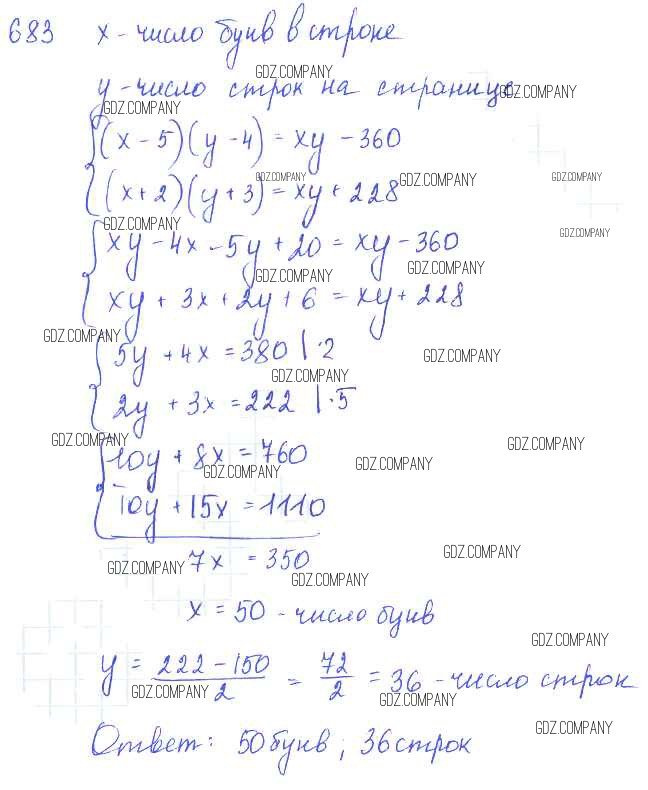 683 x - число букв в строке
GDZ.COMPANY
y - число строк на странице
GDZ.COMPANY
GDZ.COMPANY
(x - 5)(y - 4) = xy - 360
GDZ.COMPANY GDZ.COMPANY GDZ.COMPANY
(x + 2)(y + 3) = xy + 228
GDZ.COMPANY GDZ.COMPANY
xy - 4x - 5y + 20 = xy - 360
GDZ.COMPANY GDZ.COMPANY
xy + 3x + 2y + 6 = xy + 228
GDZ.COMPANY
5y + 4x = 380 | ·2
GDZ.COMPANY
GDZ.COMPANY
2y + 3x = 222 | ·5
GDZ.COMPANY GDZ.COMPANY
10y + 8x = 760
GDZ.COMPANY GDZ.COMPANY
10y + 15x = 1110
GDZ.COMPANY
7x = 350
GDZ.COMPANY
GDZ.COMPANY
x = 50 - число букв
GDZ.COMPANY
y = (222 - 150)/2 = 72/2 = 36 - число строк
GDZ.COMPANY GDZ.COMPANY
GDZ.COMPANY
Ответ: 50 букв; 36 строк